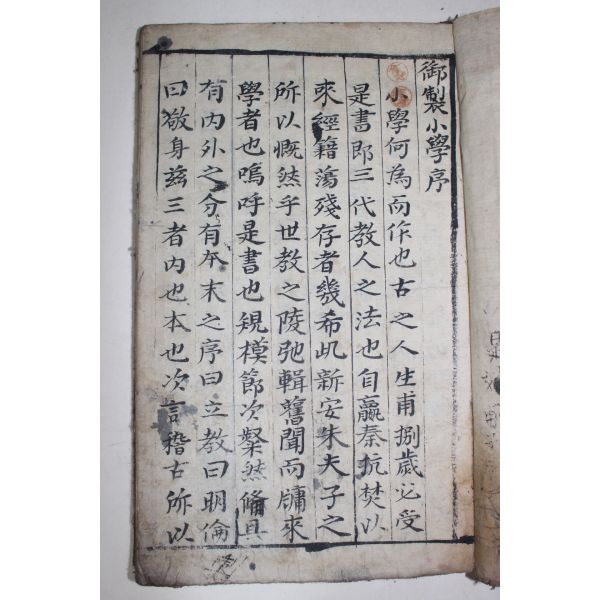 御製小學序
小學何為而作也古之人生甫捌歲必受
是書即三代教人之法也自嬴秦坑焚以
來經籍蕩殘存者幾希此新安朱夫子之
所以慨然乎世教之陵弛輯舊聞而牖來
學者也嗚呼是書也規模節次粲然備具
有內外之分有本末之序曰立教曰明倫
曰敬身玆三者內也本也次言稽古所以